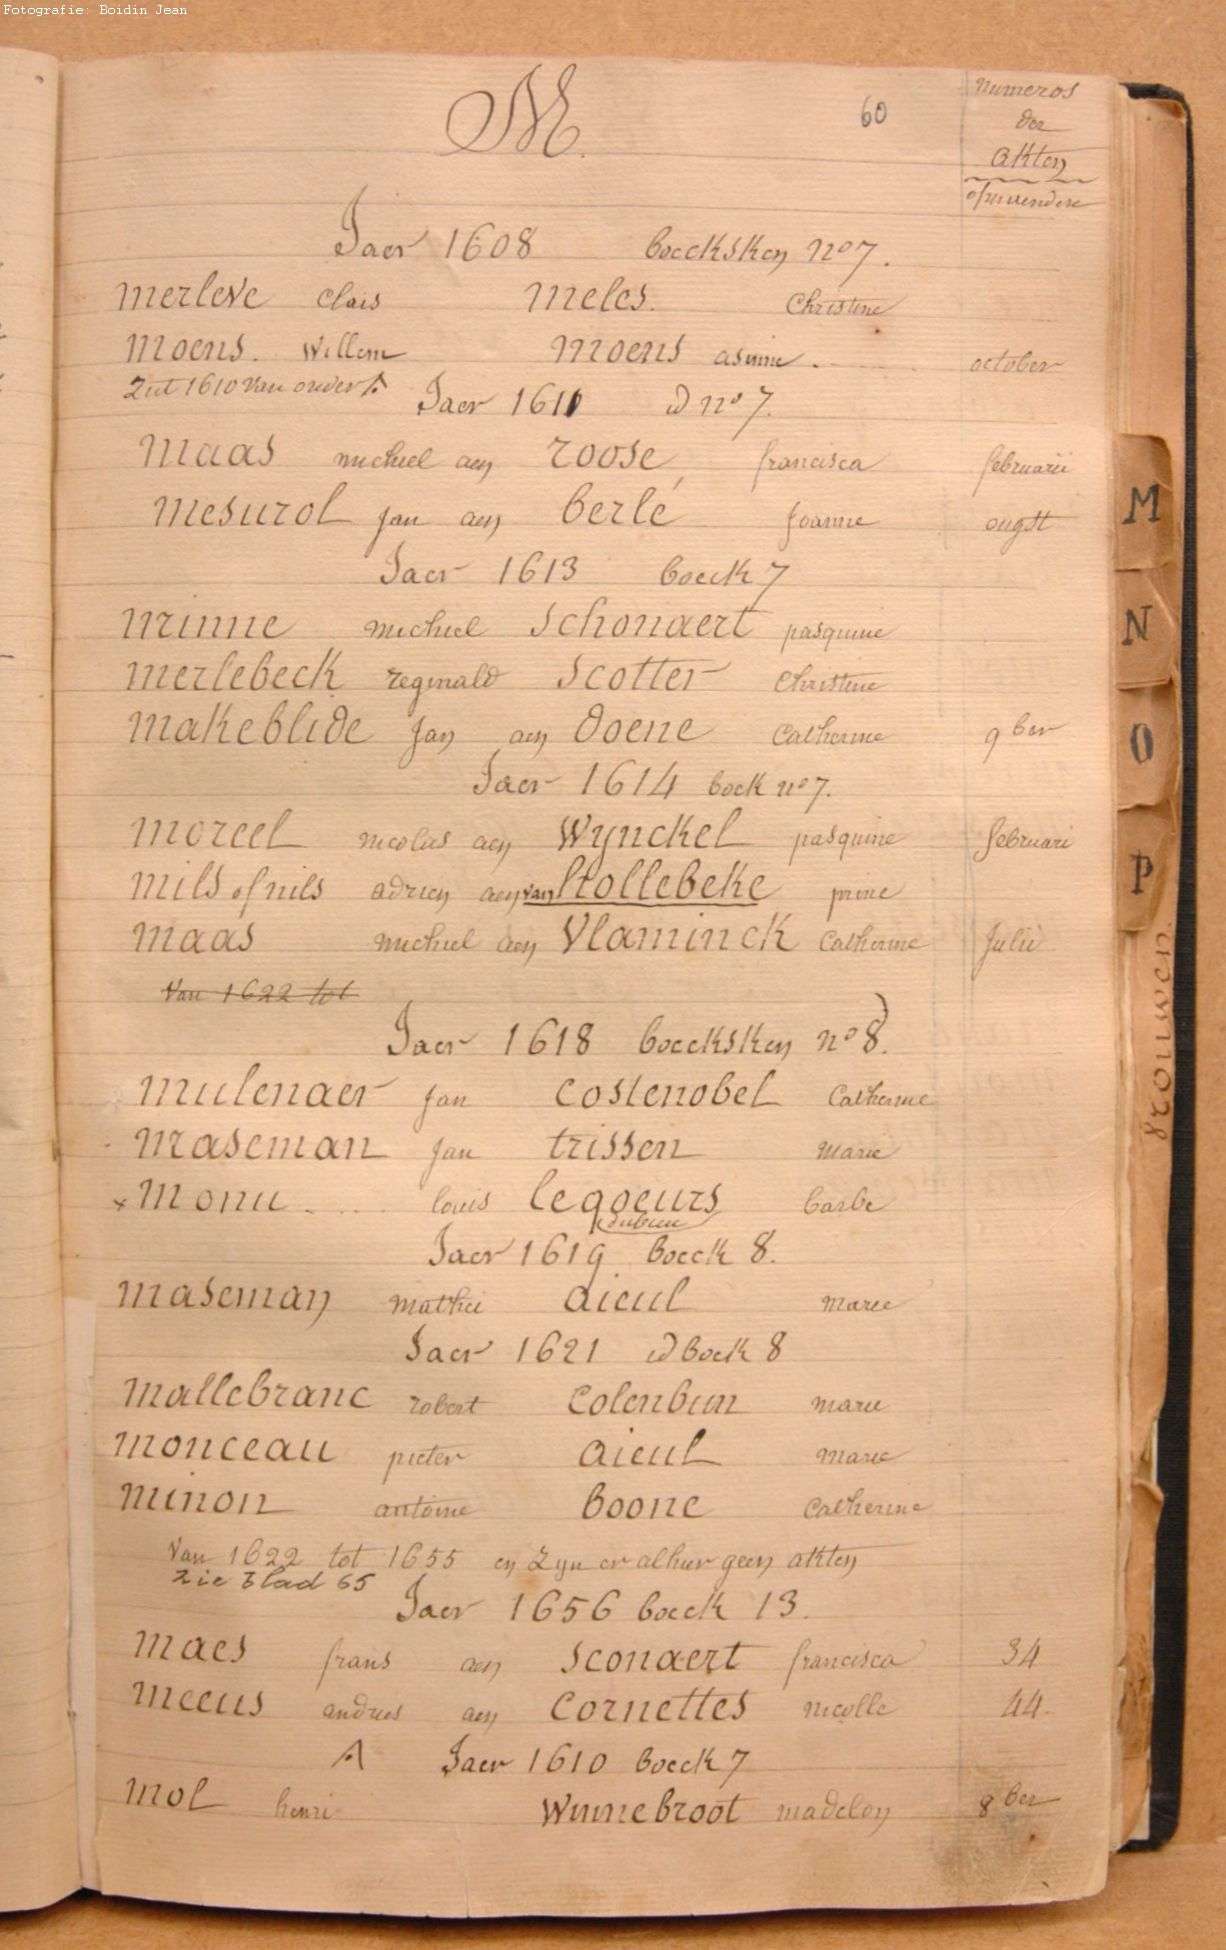 Fotografie: Boidin Jean
M. 60
numeros
der
akten
Jaer 1608 boecksken no 7.
merleve Clais meles. Christine
moens. Willem moens asinne. october
Ziet 1610 van onder A Jaer 1611 id no 7.
maas michiel aen roose francisca februarii
mesurol jan aen berlé joanne ougst
Jaer 1613 boeck 7
mrinne michiel schonaert pasquine
merlebeck reginald scotter Christine
makeblide jan aen doene Catherine 9ber
Jaer 1614 boek no 7.
moreel nicolas aen Wynckel pasquine februari
mils of nils adrien aen van hollebeke prine
maas michiel aen Vlaminck Catherine Julii
Van 1622 tot
Jaer 1618 boecksken no 8.
mulenaer jan costenobel Catherine
maseman jan trissen marie
x monu .... louis legoeurs barbe
Jaer 1619 boeck 8.
maseman mathei aieul marie
Jaer 1621 id boek 8
mallebranc robert Colenbun marie
monceau pieter aieul marie
minon antoine boone Catherine
Van 1622 tot 1655 en zyn er alhier geen akten
zie blad 65
Jaer 1656 boeck 13.
maes frans aen sconaert francisca 34
meeus andries aen Cornettes nicolle 44.
A Jaer 1610 boeck 7
mol henri Winnebroot madelon 8ber
M
N
O
P
vrouwen